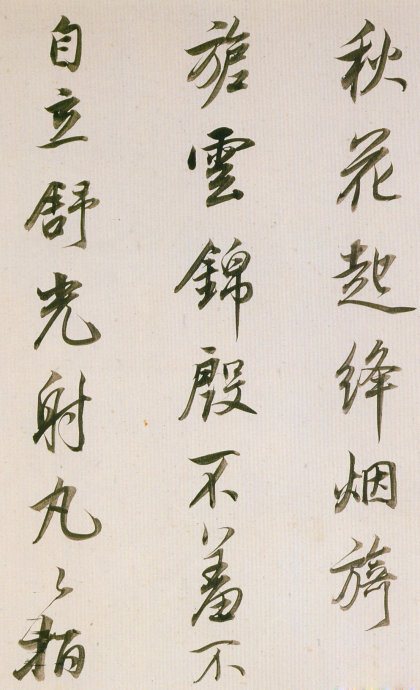 秋花起絳烟旖
旎雲錦殷不羞不
自立舒光射丸丸栢